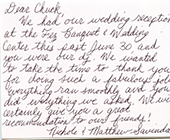 Dear Chuck,
We had our wedding reception
at the Banquet & Wedding
Center this past June 30 and
you were our dj. We wanted
to take the time to thank you
for doing such a fabulous job.
Everything ran smoothly and you
did everything we asked. We will
certainly give you a great
recommendation to our friends!
Nichole & Matthew